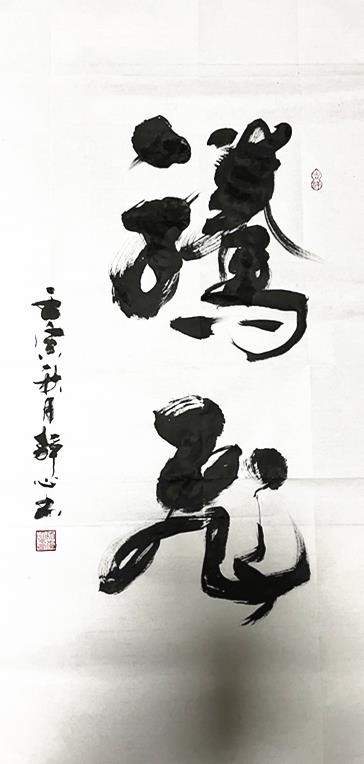 騰飛
壬寅秋月靜心书